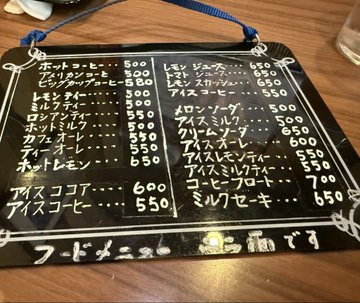 ホットコーヒー・・ 500
アメリカンコーヒー 500
ビッグカップコーヒー・ 580
レモンティー・・・ 500
ミルクティー・・・ 500
ロシアンティー・・・ 550
ホットミルク・・・ 500
カフェオーレ・・・ 550
ティーオーレ・・・ 550
ホットレモン・・・ 650
アイスココア・・・ 600
アイスコーヒー・・・ 550
レモンジュース・・・ 650
トマトジュース・・・ 650
レモンスカッシュ・・・ 650
アイスコーラ・・・ 550
メロンソーダ・・・ 500
アイスミルク・・・ 500
クリームソーダ・・・ 650
アイスオーレ・・・ 600
アイスレモンティー・・・ 550
アイスミルクティー・・・ 550
コーヒーフロート・・ 700
ミルクセーキ・・・ 650
フードメニュー です